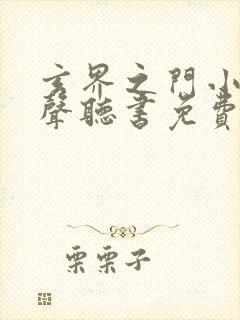 玄界之門小
聲聽書免費
栗栗子